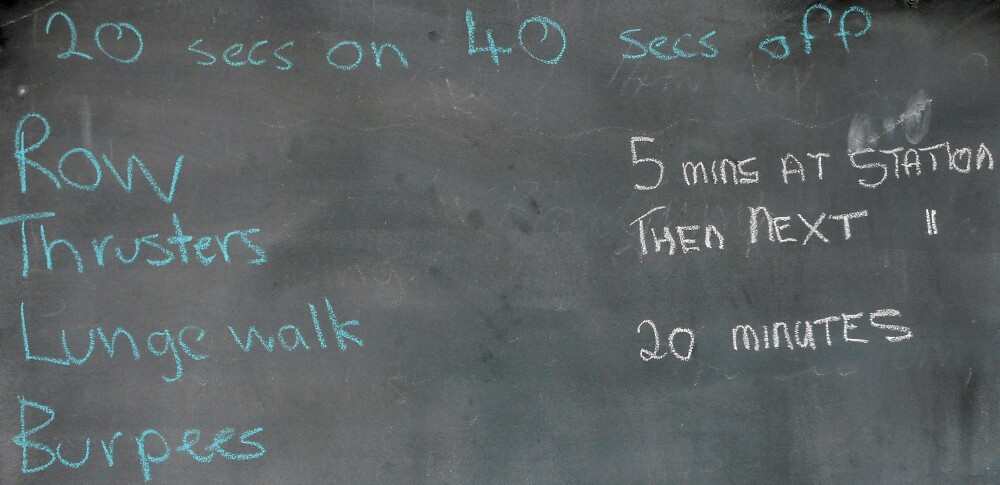 20 secs on 40 secs off
Row
Thrusters
Lunge walk
Burpees
5 mins AT STATION
THEN NEXT "
20 MINUTES